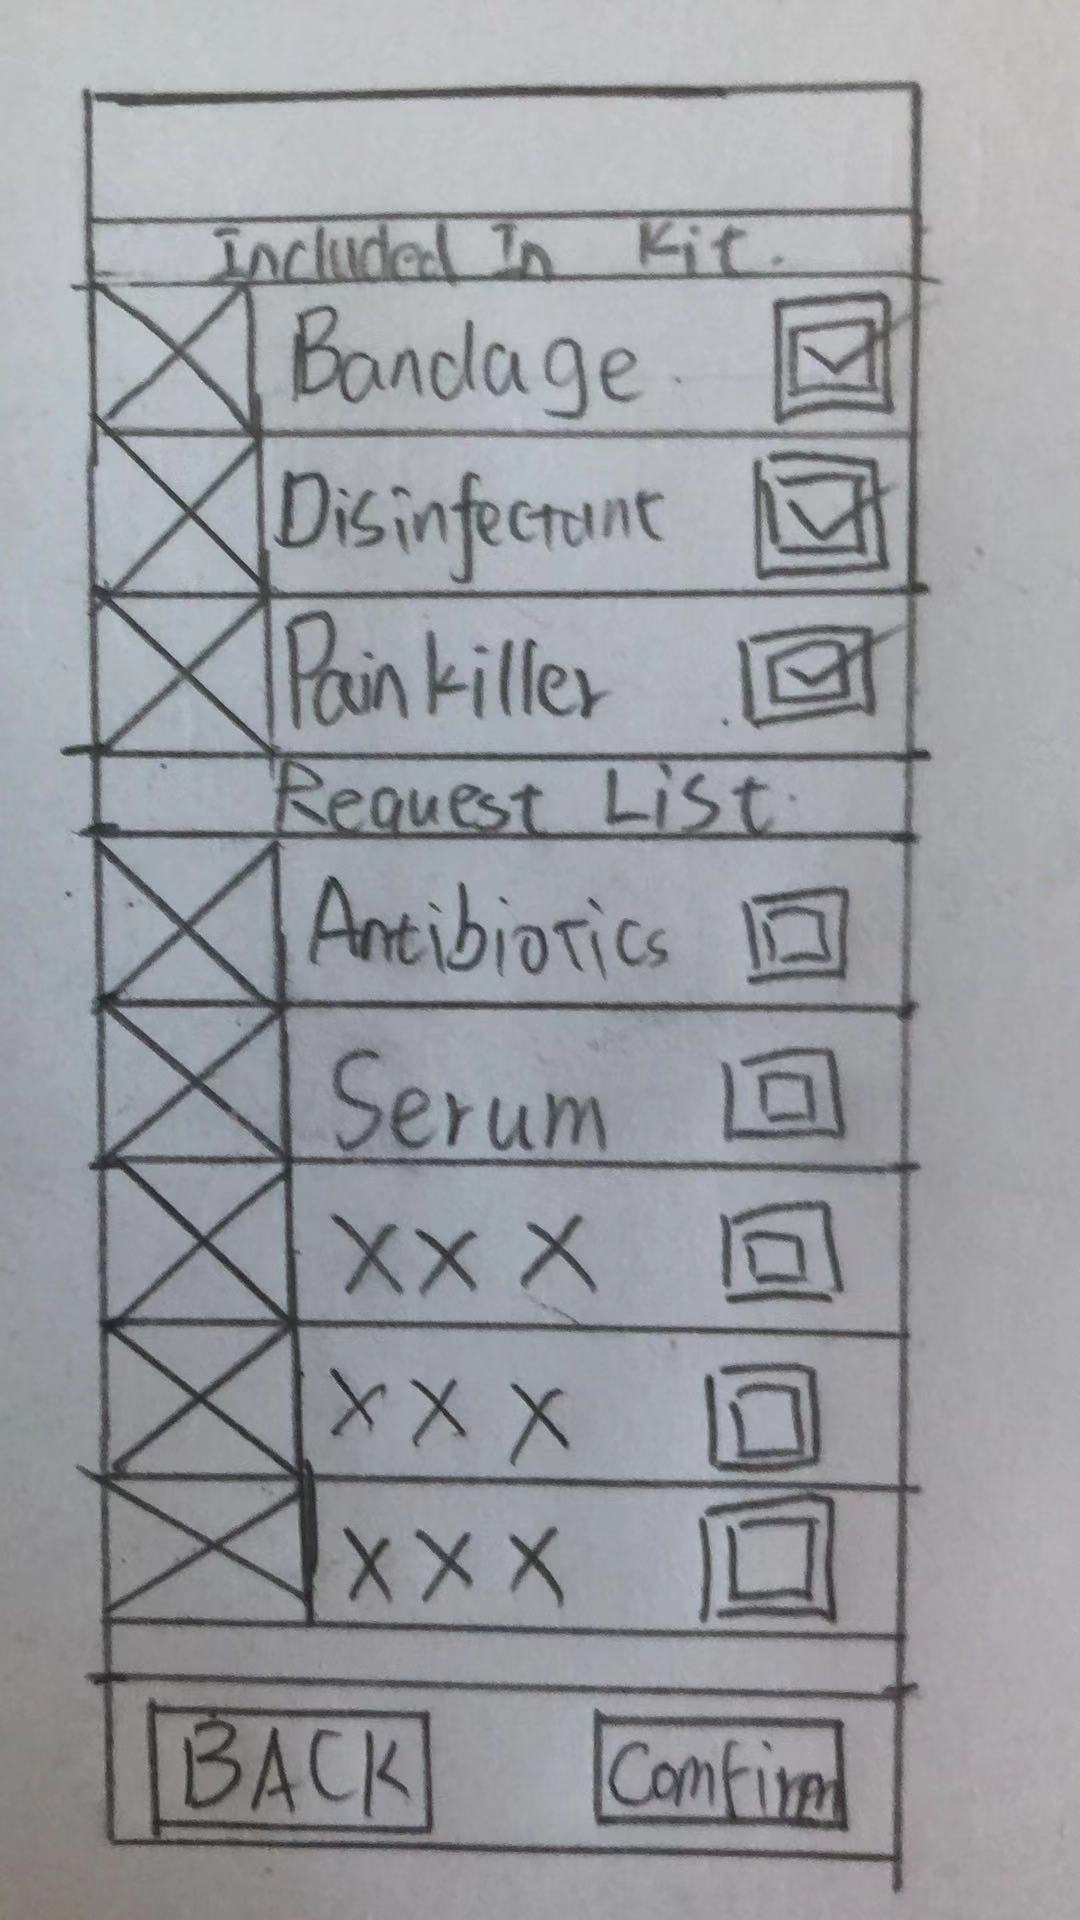 Included In Kit.
Bandage
Disinfectant
Painkiller
Request List
Antibiotics
Serum
XXX
XXX
XXX
BACK
Comfirm